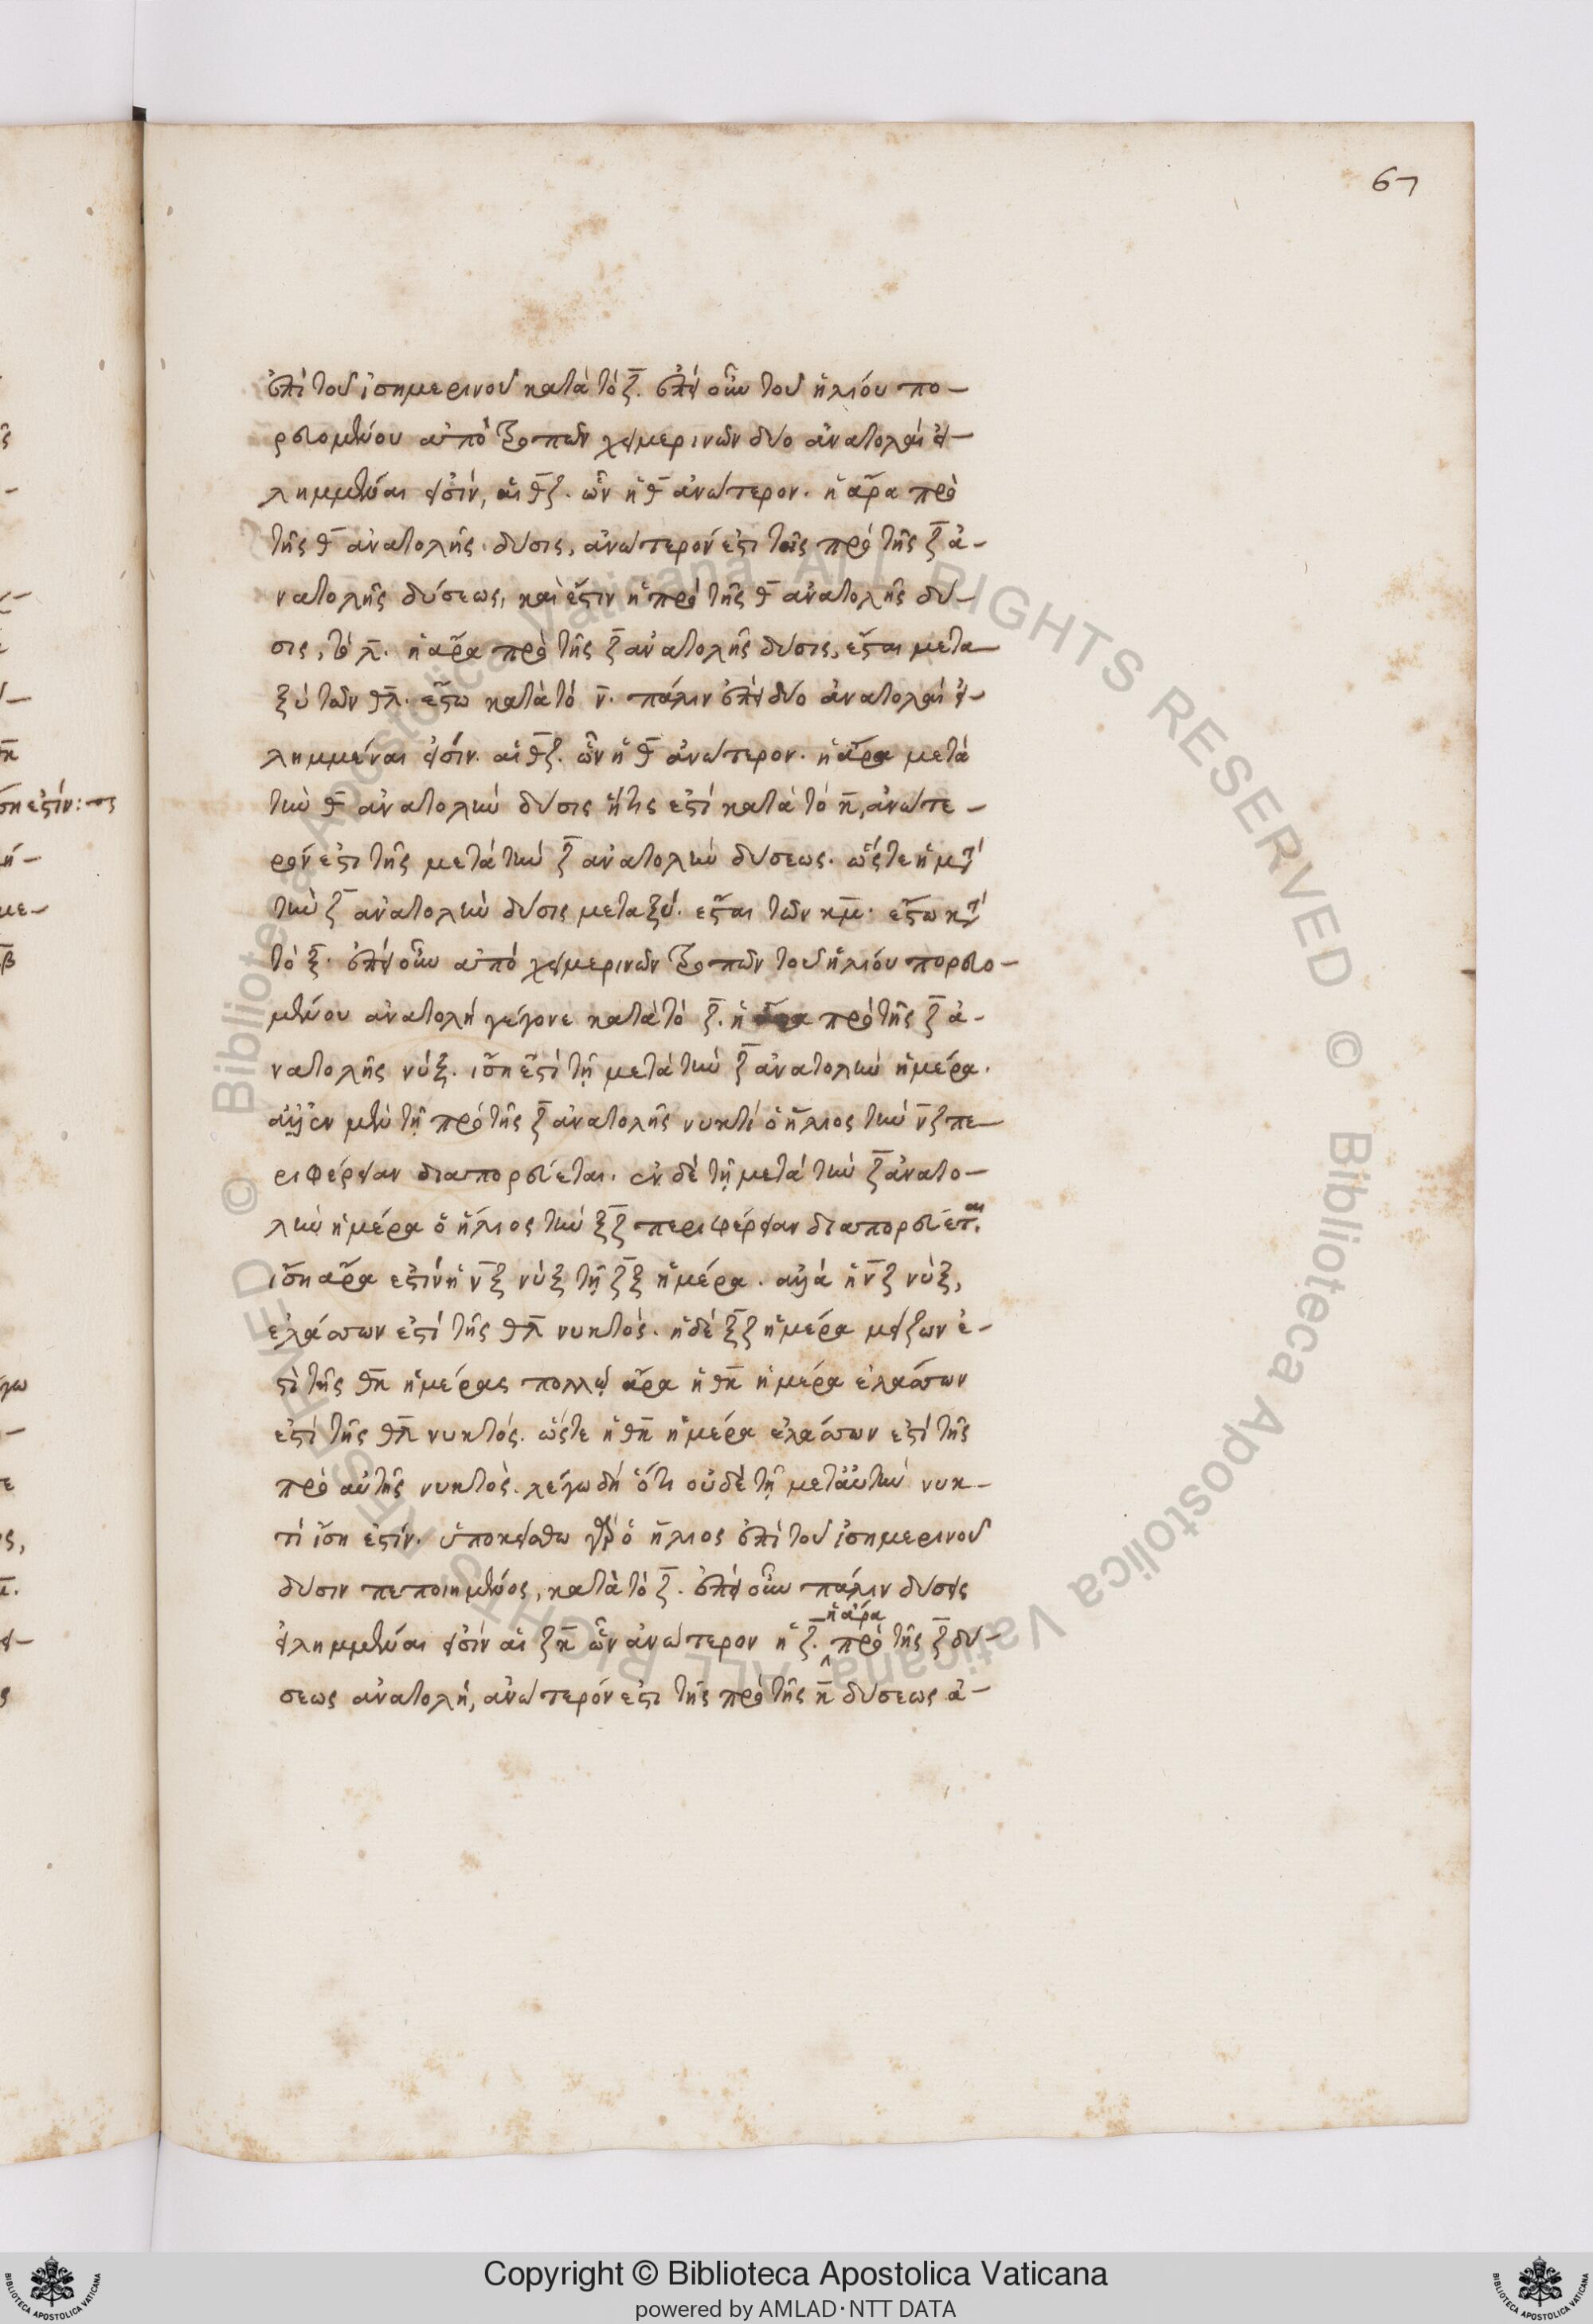 67
ἐπὶ τοῦ ἰσημερινοῦ κατὰ τὸ ζ̅. ἐπεὶ οὖν τοῦ ἡλίου πο-
ρευομένου ἀπὸ τροπῶν χειμερινῶν δύο ἀνατολαὶ εἰ-
λημμέναι εἰσίν, αἱ θ̅ζ. ὧν ἡ θ̅ ἀνώτερον. ἡ ἄρα πρὸ
τῆς θ̅ ἀνατολῆς δύσις, ἀνώτερόν ἐστι τῆς πρὸ τῆς ζ̅ ἀ-
νατολῆς δύσεως, καὶ ἔστιν ἡ πρὸ τῆς θ̅ ἀνατολῆς δύ-
σις, τὸ λ̅. ἡ ἄρα πρὸ τῆς ζ̅ ἀνατολῆς δύσις, ἔσται μετα
ξὺ τῶν θλ̅. ἔστω κατὰ τὸ ν̅. πάλιν ἐπεὶ δύο ἀνατολαὶ εἰ-
λημμέναι εἰσίν. αἱ θ̅ζ. ὧν ἡ θ̅ ἀνώτερον. ἡ ἄρα μετὰ
τὴν θ̅ ἀνατολὴν δύσις ἥτις ἐστὶ κατὰ τὸ κ̅, ἀνώτε-
ρόν ἐστι τῆς μετὰ τὴν ζ̅ ἀνατολὴν δύσεως. ὥστε ἡ μετὰ
τὴν ζ̅ ἀνατολὴν δύσις μεταξὺ. ἔσται τῶν κμ̅. ἔστω κατὰ
τὸ ξ̅. ἐπεὶ οὖν ἀπὸ χειμερινῶν τροπῶν τοῦ ἡλίου πορευο-
μένου ἀνατολὴ γέγονε κατὰ τὸ ζ̅. ἡ ἄρα πρὸ τῆς ζ̅ ἀ-
νατολῆς νύξ. ἴση ἐστὶ τῇ μετὰ τὴν ζ̅ ἀνατολὴν ἡμέρα.
ἀλλ' ἐν μὲν τῇ πρὸ τῆς ζ̅ ἀνατολῆς νυκτὶ ὁ ἥλιος τὴν ν̅ζ πε
ριφέρειαν διαπορεύεται. ἐν δὲ τῇ μετὰ τὴν ζ̅ ἀνατο-
λὴν ἡμέρα ὁ ἥλιος τὴν ξ̅ζ περιφέρειαν διαπορεύεται.
ἴση ἄρα ἐστὶν ἡ ν̅ξ νὺξ τῇ ζ̅ξ ἡμέρα. ἀλλὰ ἡ ν̅ζ νὺξ,
ἐλάσσων ἐστὶ τῆς θλ̅ νυκτός. ἡ δὲ ξ̅ζ ἡμέρα μείζων ἐ-
στὶ τῆς θκ̅ ἡμέρας πολλῷ ἄρα ἡ θκ̅ ἡμέρα ἐλάσσων
ἐστὶ τῆς θλ̅ νυκτός. ὥστε ἡ θκ̅ ἡμέρα ἐλάσσων ἐστὶ τῆς
πρὸ αὐτῆς νυκτός. λέγω δὴ ὅτι οὐδὲ τῇ μετ' αὐτὴν νυκ-
τὶ ἴση ἐστίν. ὑποκείσθω γὰρ ὁ ἥλιος ἐπὶ τοῦ ἰσημερινοῦ
δύσιν πεποιημένος, κατὰ τὸ ζ̅. ἐπεὶ οὖν πάλιν δύσεις
εἰλημμέναι εἰσὶν αἱ ζκ̅ ὧν ἀνώτερον ἡ ζ̅. ἡ ἄρα πρὸ τῆς ζ̅ δύ-
σεως ἀνατολή, ἀνώτερόν ἐστι τῆς πρὸ τῆς κ̅ δύσεως ἀ-
Copyright © Biblioteca Apostolica Vaticana
powered by AMLAD·NTT DATA